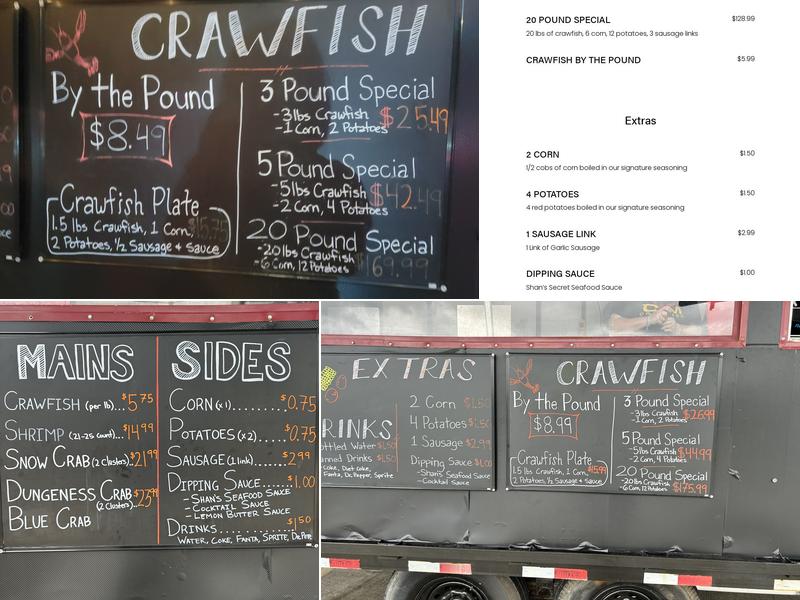 CRAWFISH
By the Pound
$8.49
Crawfish Plate
1.5 lbs Crawfish, 1 Corn, $15.75
2 Potatoes, 1/2 Sausage + Sauce
3 Pound Special
-3lbs Crawfish $25.49
-1 Corn, 2 Potatoes
5 Pound Special
-5lbs Crawfish $42.49
-2 Corn, 4 Potatoes
20 Pound Special
-20lbs Crawfish
-6 Corn, 12 Potatoes $169.99
20 POUND SPECIAL $128.99
20 lbs of crawfish, 6 corn, 12 potatoes, 3 sausage links
CRAWFISH BY THE POUND $5.99
Extras
2 CORN $1.50
1/2 cobs of corn boiled in our signature seasoning
4 POTATOES $1.50
4 red potatoes boiled in our signature seasoning
1 SAUSAGE LINK $2.99
1 Link of Garlic Sausage
DIPPING SAUCE $1.00
Shan's Secret Seafood Sauce
MAINS
CRAWFISH (per lb)...$5.75
SHRIMP (21-25 count)...$14.99
SNOW CRAB (2 Clusters)..$21.99
DUNGENESS CRAB
(2 Clusters)..$23.99
BLUE CRAB
SIDES
CORN (x1)........$0.75
POTATOES (x2)......$0.75
SAUSAGE (1 link)......$2.99
DIPPING SAUCE......$1.00
- SHAN'S SEAFOOD SAUCE
- COCKTAIL SAUCE
- LEMON BUTTER SAUCE
DRINKS.........$1.50
WATER, COKE, FANTA, SPRITE, Dr.Pepp
EXTRAS
2 Corn $1.50
4 Potatoes $1.50
1 Sausage $2.99
Dipping Sauce $1.00
-Shan's Seafood Sauce
-Cocktail Sauce
RINKS
ottled Water $1.50
anned Drinks $1.50
Coke, Diet Coke,
Fanta, Dr. Pepper, Sprite
CRAWFISH
By the Pound
$8.99
Crawfish Plate
1.5 lbs Crawfish, 1 Corn, $15.99
2 Potatoes, 1/2 Sausage + Sauce
3 Pound Special
-3lbs Crawfish $26.99
-1 Corn, 2 Potatoes
5 Pound Special
-5lbs Crawfish $44.99
-2 Corn, 4 Potatoes
20 Pound Special
-20lbs Crawfish
-6 Corn, 12 Potatoes $175.99